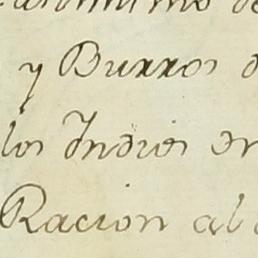 y Burros
los Indios en
Racion al